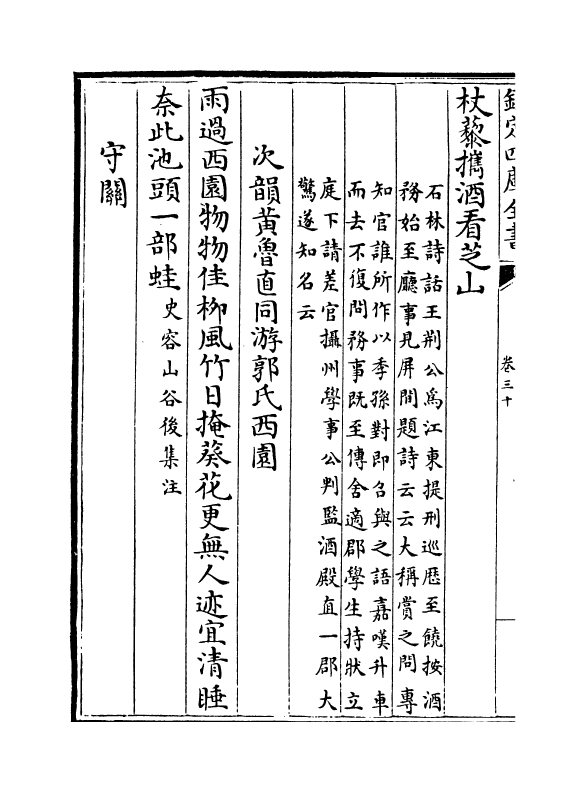 欽定四庫全書
卷三十
杖藜攜酒看芝山
石林詩話王荆公為江東提刑巡歴至饒按酒
務始至廳事見屏間題詩云云大稱賞之問專
知官誰所作以季孫對即召與之語嘉嘆升車
而去不復問務事既至傳舍適郡學生持狀立
庭下請差官攝州學事公判監酒殿直一郡大
驚遂知名云
次韻黄魯直同游郭氏西園
雨過西園物物佳柳風竹日掩葵花更無人迹宜清睡
奈此池頭一部蛙史容山谷後集注
守關